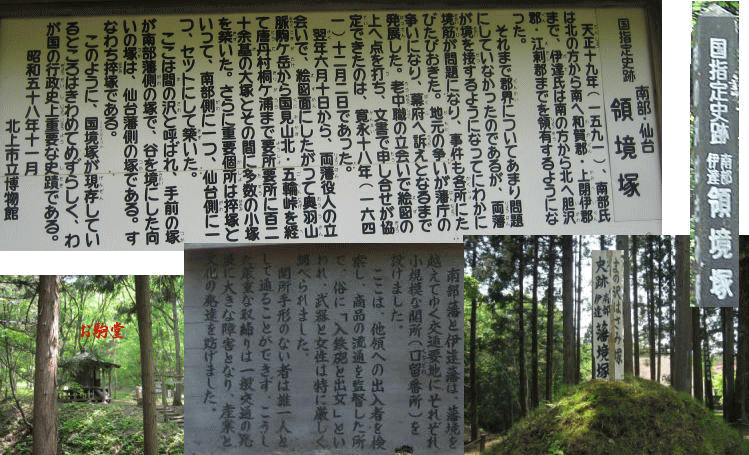 国指定史跡 南部 仙台 領境塚
天正十九年(一五九一)、南部氏
は北の方から南へ和賀郡・上閉伊郡
まで、伊達氏は南の方から北へ胆沢
郡・江刺郡までを領有するようにな
った。
それまで郡界についてあまり問題
にしていなかったのであるが、両藩
が境を接するようになってにわかに
境筋が問題になり、事件も各所にた
びたびおきた。地元の争いが藩庁の
争いになり、幕府へ訴えとなるまで
発展した。老中職の立会いで絵図の
上へ点を打ち、文書で申し合せが協
定できたのは、寛永十八年(一六四
一)十二月二日であった。
翌年六月十日から、両藩役人の立
会いで、絵図面にしたがって奥羽山
脈駒ケ岳から国見山北・五輪峠を経
て唐丹村桐ケ浦まで要所要所に百二
十余基の大塚とその間に多数の小塚
を築いた。さらに重要個所は挟塚と
いって、南部側に一つ、仙台側に一
つ、セットにして築いた。
ここは間の沢と呼ばれ、手前の塚
が南部藩側の塚で、谷を境にした向
いの塚は、仙台藩側の塚である。す
なわち挟塚である。
このように、国境塚が現存してい
るところはきわめてめずらしく、わ
が国の行政史上重要な史蹟である。
昭和五十八年十一月
北上市立博物館
国指定史跡 南部 伊達 領境塚
南部藩と伊達藩は、藩境を
越えてゆく交通要地にそれぞれ
小規模な関所(口留番所)を
設けました。
ここは、他領への出入者を検
索し、商品の流通を監督した所
で、俗に「入鉄砲と出女」とい
われ、武器と女性は特に厳しく
調べられました。
関所手形のない者は誰一人と
して通ることができず、こうし
た厳重な取締りは一般交通の発
達に大きな障害となり、産業と
文化の発達を妨げました。
お駒堂
間の沢はさみ塚
史跡 南部 伊達 藩境塚